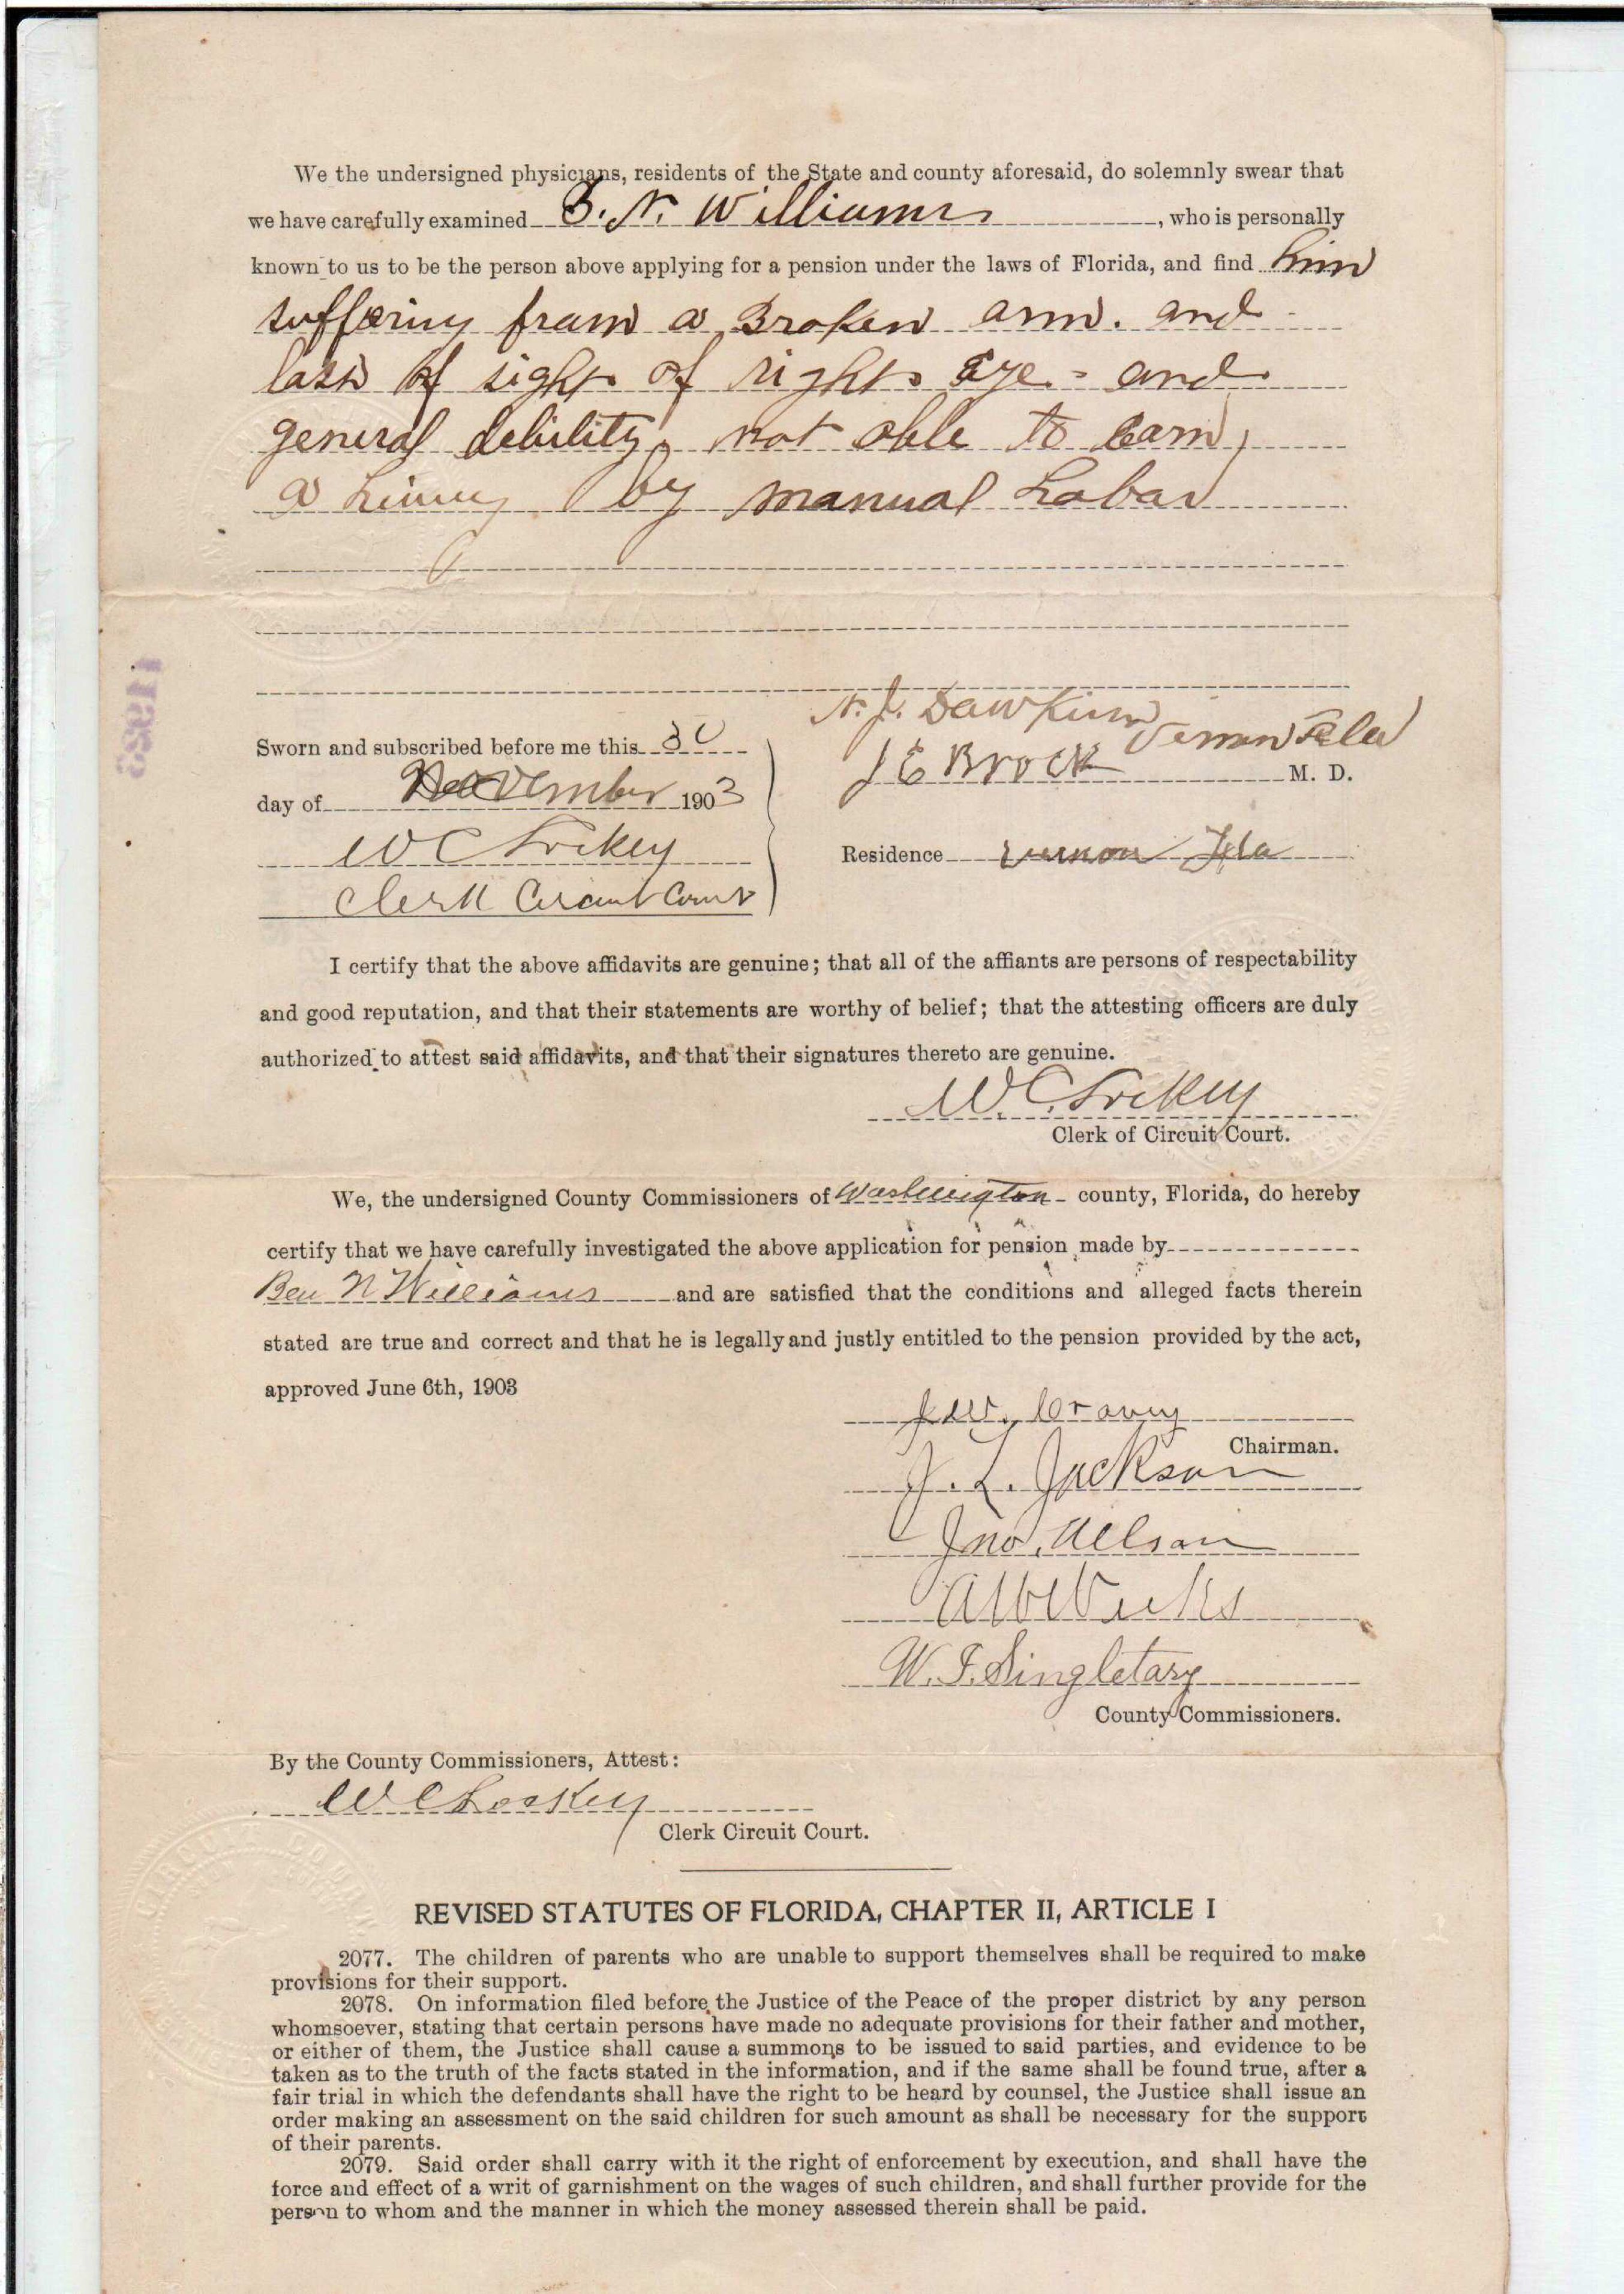 We the undersigned physicians, residents of the State and county aforesaid, do solemnly swear that
we have carefully examined B. N. Williams, who is personally
known to us to be the person above applying for a pension under the laws of Florida, and find him
suffering from a Broken arm. and
loss of sight of right Eye - and
general debility, not able to Earn
a Living by manual Labor
N. J. Dawkins Vernon Fla
Sworn and subscribed before me this 30
J E Brock M. D.
day of November 1903
W C Lockey
Residence Vernon Fla
Clerk Circuit Court
I certify that the above affidavits are genuine; that all of the affiants are persons of respectability
and good reputation, and that their statements are worthy of belief; that the attesting officers are duly
authorized to attest said affidavits, and that their signatures thereto are genuine.
W. C. Lockey
Clerk of Circuit Court.
We, the undersigned County Commissioners of Washington county, Florida, do hereby
certify that we have carefully investigated the above application for pension made by
Ben N Williams and are satisfied that the conditions and alleged facts therein
stated are true and correct and that he is legally and justly entitled to the pension provided by the act,
approved June 6th, 1903
J. W. Cravey
Chairman.
J. L. Jackson
Jno.
Weeks
W. F. Singletary
County Commissioners.
By the County Commissioners, Attest:
W C Lockey
Clerk Circuit Court.
REVISED STATUTES OF FLORIDA, CHAPTER II, ARTICLE I
2077. The children of parents who are unable to support themselves shall be required to make
provisions for their support.
2078. On information filed before the Justice of the Peace of the proper district by any person
whomsoever, stating that certain persons have made no adequate provisions for their father and mother,
or either of them, the Justice shall cause a summons to be issued to said parties, and evidence to be
taken as to the truth of the facts stated in the information, and if the same shall be found true, after a
fair trial in which the defendants shall have the right to be heard by counsel, the Justice shall issue an
order making an assessment on the said children for such amount as shall be necessary for the support
of their parents.
2079. Said order shall carry with it the right of enforcement by execution, and shall have the
force and effect of a writ of garnishment on the wages of such children, and shall further provide for the
person to whom and the manner in which the money assessed therein shall be paid.